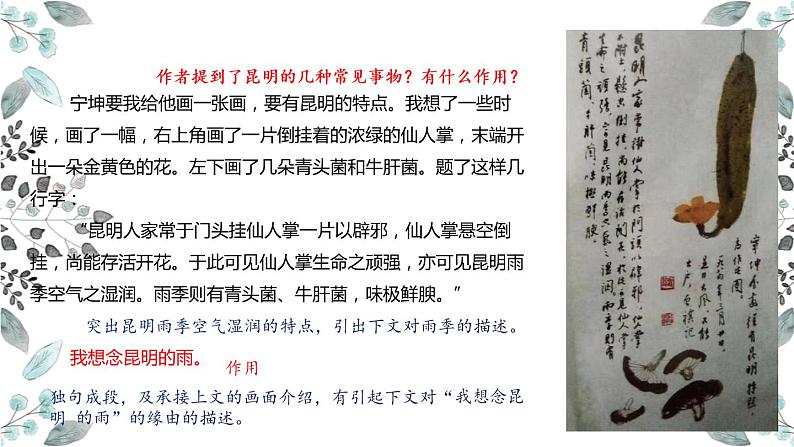 作者提到了昆明的几种常见事物？有什么作用？
宁坤要我给他画一张画，要有昆明的特点。我想了一些时
候，画了一幅，右上角画了一片倒挂着的浓绿的仙人掌，末端开
出一朵金黄色的花。左下画了几朵青头菌和牛肝菌。题了这样几
行字：
“昆明人家常于门头挂仙人掌一片以辟邪，仙人掌悬空倒
挂，尚能存活开花。于此可见仙人掌生命之顽强，亦可见昆明雨
季空气之湿润。雨季则有青头菌、牛肝菌，味极鲜腴。”
突出昆明雨季空气湿润的特点，引出下文对雨季的描述。
我想念昆明的雨。
作用
独句成段，及承接上文的画面介绍，有引起下文对“我想念昆
明 的雨”的缘由的描述。
昆明人家常掛仙人掌於門頭以辟邪，仙人掌
懸空倒掛，尚能存活開花。於此見仙人掌
生命之頑強，亦可見昆明雨季空氣之濕潤，雨季則有
青頭菌、牛肝菌，味極鮮腴。
寧坤屬畫須有昆明特點，
為作此圖。
一九八四年三月廿日，
是日大風，不能
出戶，曾祺記